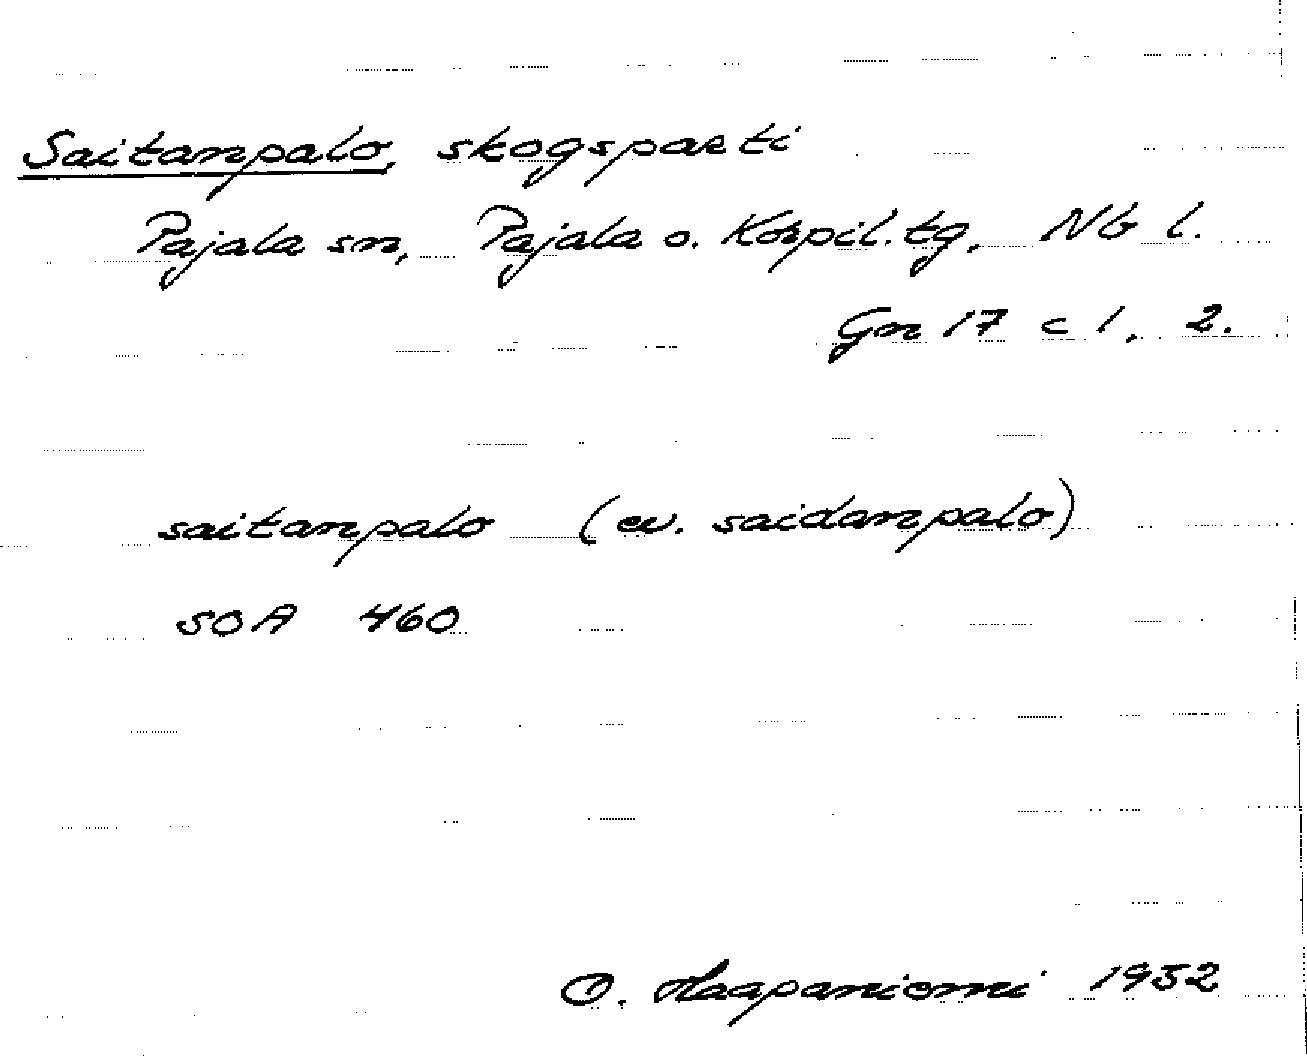 Saitanpalo, skogsparti
Pajala sn, Pajala o. Korpil.tg, Nb l.
Gn 17 c 1, 2.
saitanpalo (ev. saidanpalo)
SOA 460
O. Haapaniemi 1932